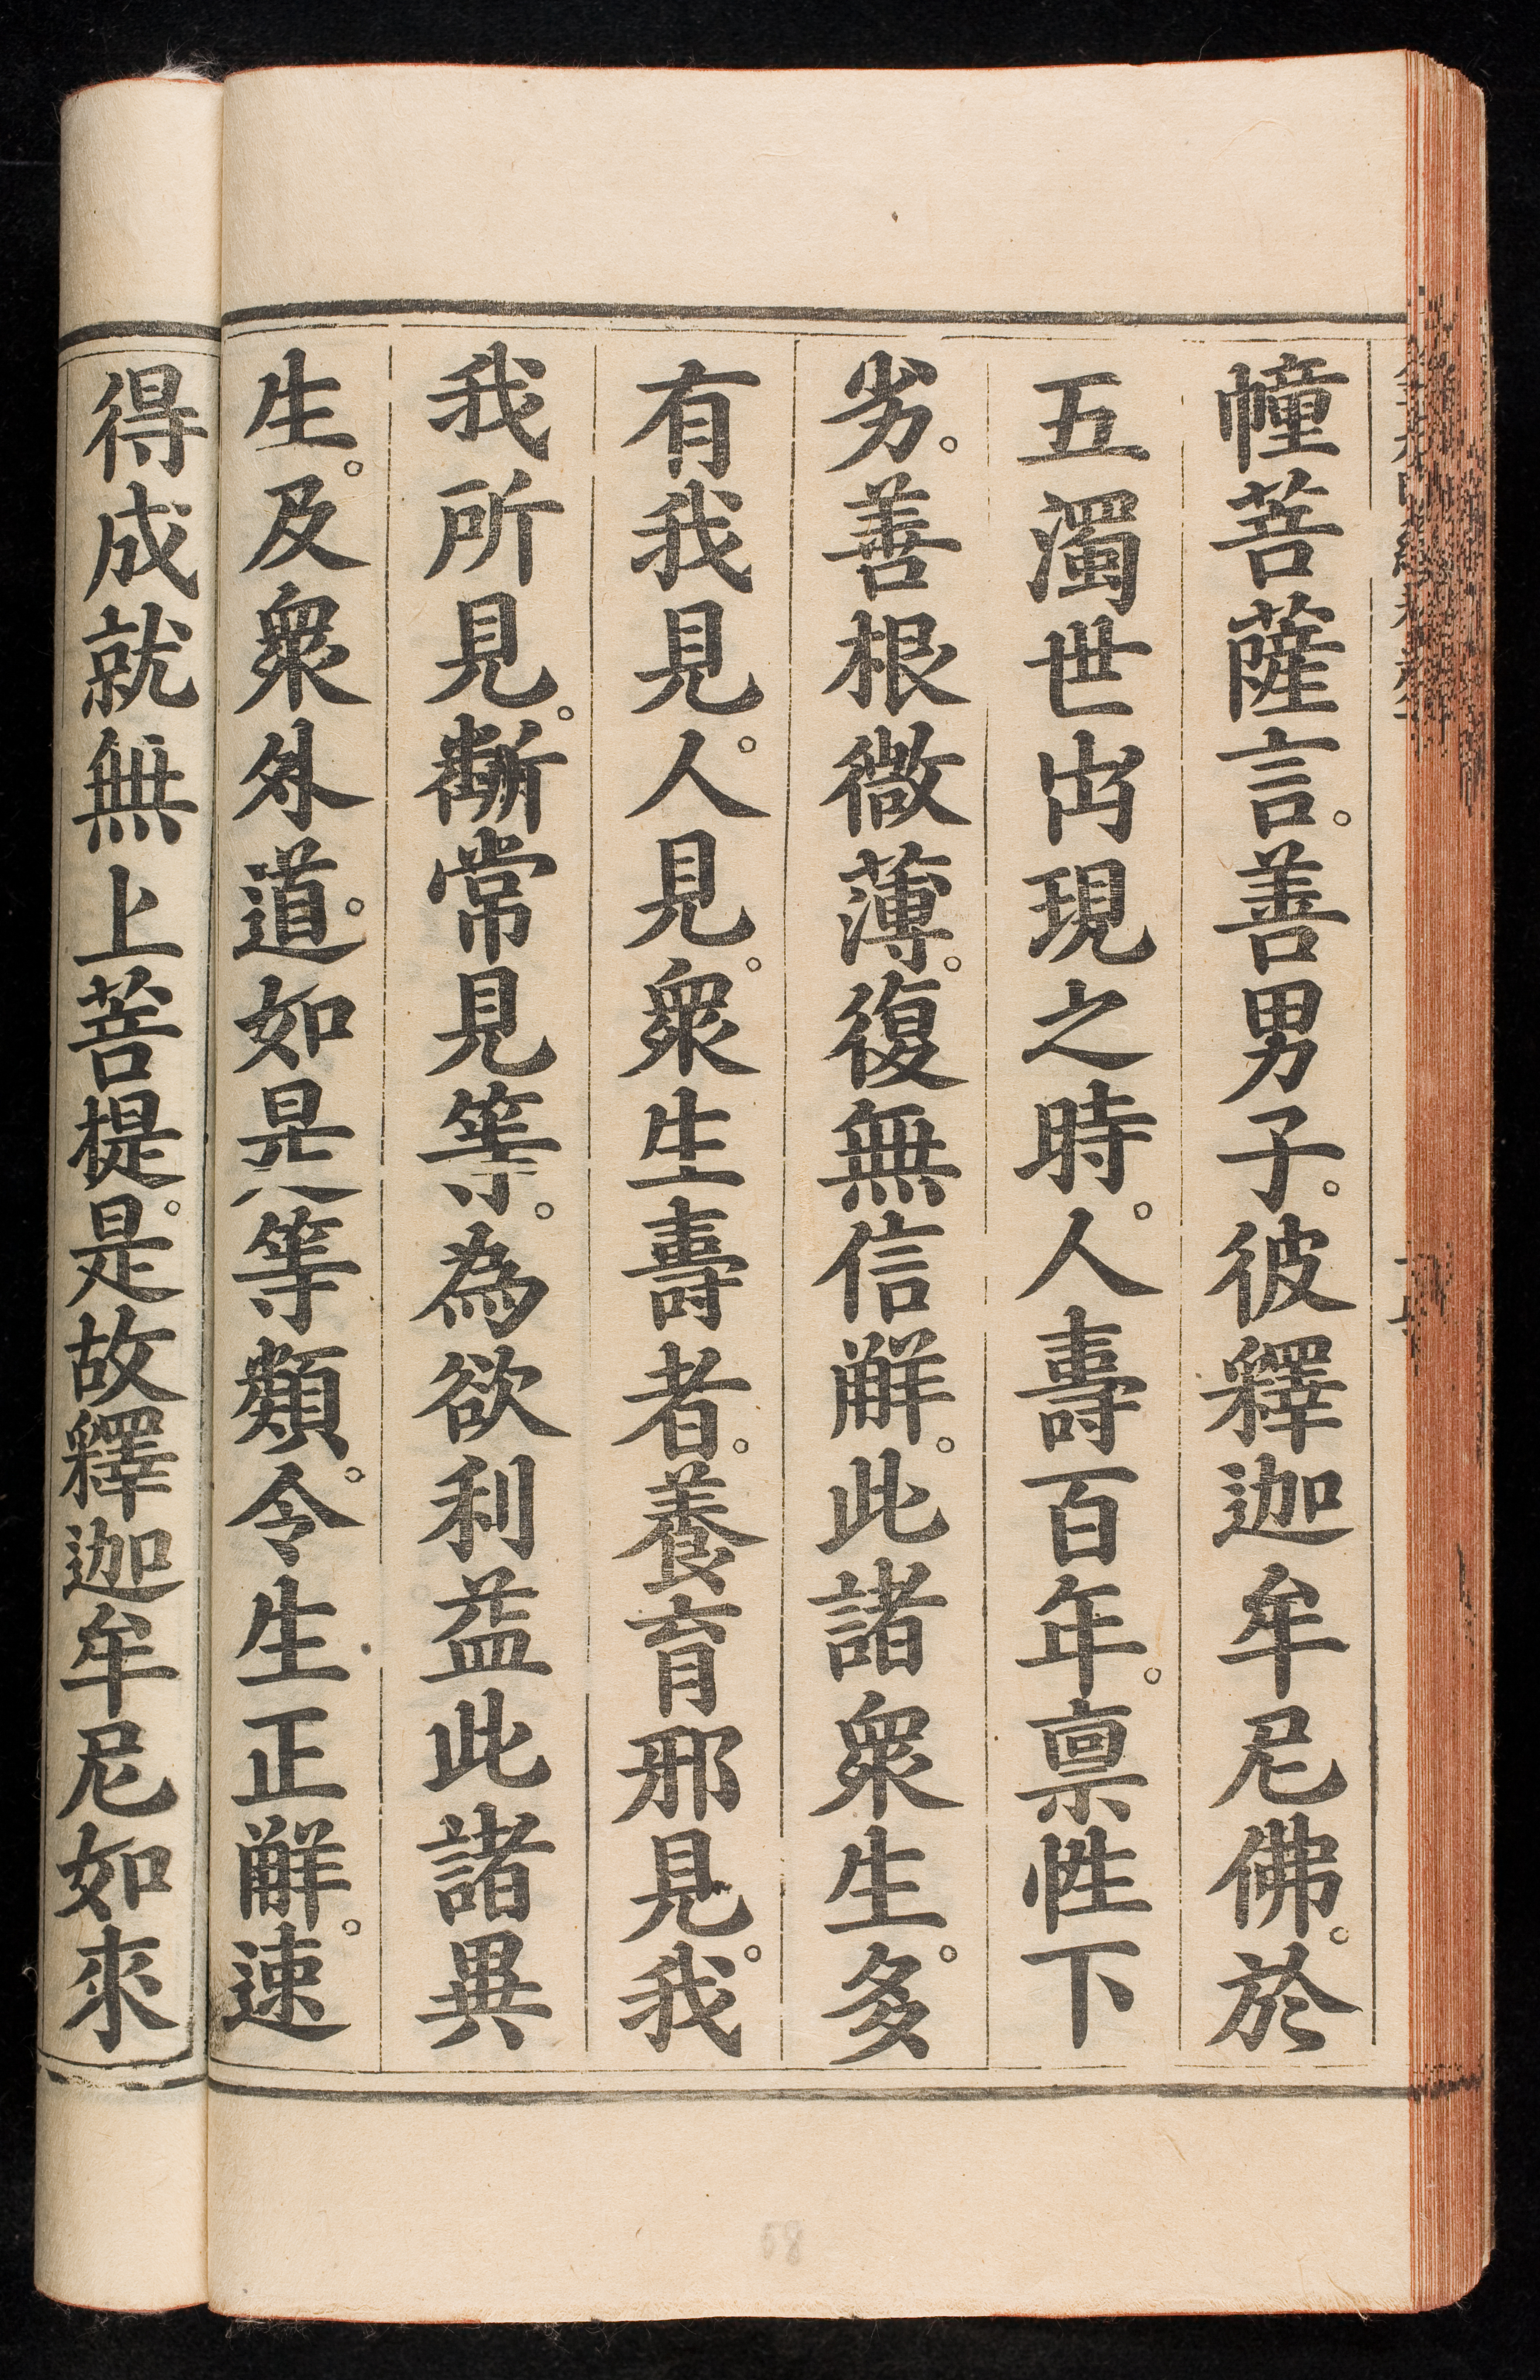 幢菩薩言。善男子。彼釋迦牟尼佛。於
五濁世出現之時。人壽百年。禀性下
劣。善根微薄。復無信解。此諸衆生。多
有我見。人見。衆生壽者。養育邪見。我
我所見。斷常見等。為欲利益此諸異
生。及衆外道。如是等類。令生正解。速
得成就無上菩提。是故釋迦牟尼如來